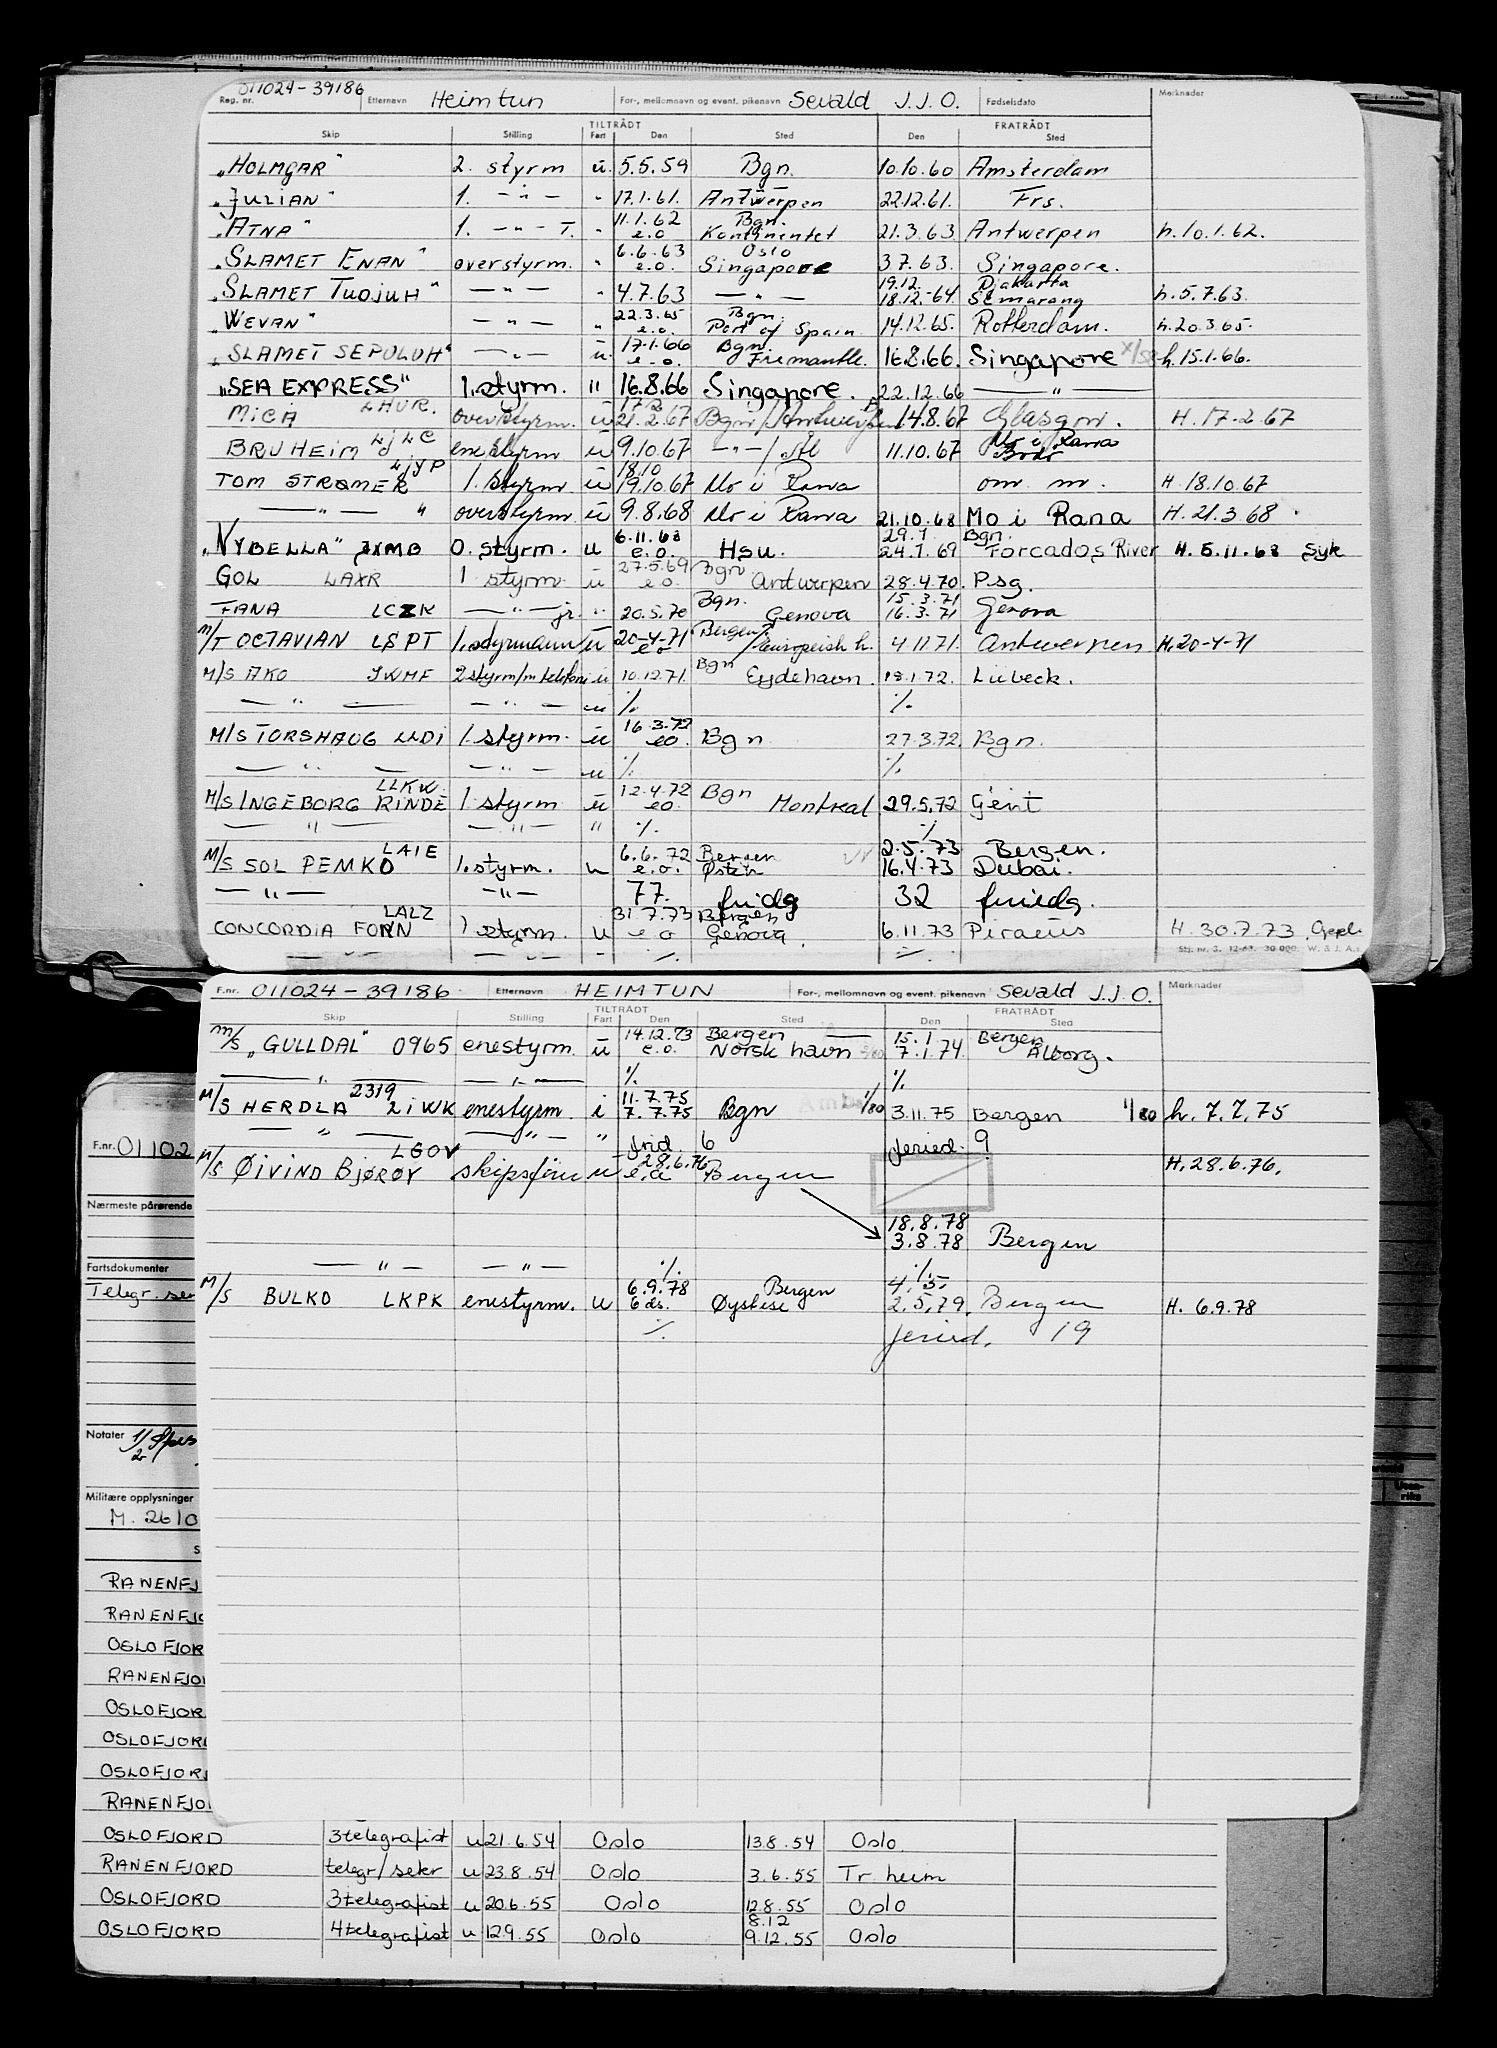 011024-39186
Reg. nr. Etternavn Heimtun For-, mellomnavn og event. pikenavn Sevald J.J.O. Fødselsdato Merknader
TILTRÅDT FRATRÅDT
Skip Stilling Fart Den Sted Den Sted
"HOLMGAR" 2. styrm u. 5.5.59 Bgn. 10.10.60 Amsterdam
"JULIAN" 1. -"- " 17.1.61. Antwerpen 22.12.61. Frs.
11.1.62 Bgn.
"ATNA" 1. -"- T. " e.o Kontinentet 21.3.63 Antwerpen h.10.1.62.
6.6.63 Oslo
"SLAMET ENAN" overstyrm. " e.o. Singapore 3.7.63. Singapore.
19.12. Djakarta
"SLAMET TUDJUH" -"- " 4.7.63 -"- 18.12.-64. Semarang h.5.7.63.
22.3.65 Bgn.
"WEVAN" -"- " e.o. Port of Spain 14.12.65. Rotterdam. h.20.3.65.
17.1.66 Bgn.
"SLAMET SEPULUH" -"- u. e-o. Fremantle. 16.8.66. Singapore h.15.1.66.
"SEA EXPRESS" 1.styrm. " 16.8.66 Singapore. 22.12.66 -"-
17/2
MICA LHUR. overstyrm. u 21.2.67 Bgn/Antwerpen 14.8.67 Glasgow. H.17-2-67
Mo i Rana
BRUHEIM LJLC enestyrm u 9.10.67 -"-/Ål 11.10.67
LJYP 18.10
TOM STRØMER 1. styrm u 19.10.67 Mo i Rana om. m. H.18.10.67
-"- " overstyrm u 9.8.68 Mo i Rana 21.10.68 Mo i Rana H.21.3 68.
6.11.68 29.1 Bgn.
"VYBELLA" JXMB O. styrm. u e.o. Hsu. 24.1.69 Forcados River H.5.11.68 Syk
27.5.69 Bgn
GOL LAXR 1 styrm. u e.o. Antwerpen 28.4.70. Psg.
Bgn. 15.3.71
FANA LCZK -"- jr. " 20.5.70 Genova 16.3.71 Genova
M/T OCTAVIAN LSPT 1.styrmann u 20-4-71 e.o Bergen/europeisk h. 4.11.71. Antwerpen H.20-4-71
M/S AKO JWMF 2styrm/m telefoni u 10.12.71. Bgn Eydehavn. 18.1.72. Lübeck.
-"- -"- u %. %.
16.3.72
M/S TORSHAUG LLDI 1.styrm. u eo. Bgn 27.3.72. Bgn.
-"- -"- u %. %.
LLKW. 12.4.72
M/S INGEBORG RINDE 1.styrm u eo. Bgn Montreal 29.5.72 Gent
-"- -"- " %. %
LAIE 6.6.72 Bergen 2.5.73 Bergen.
M/S SOL PEMKO 1.styrm. u e.o. Østein 16.4.73 Dubai.
-"- -"- 77. fridg 32 friedg.
LALZ 31.7.73 Bergen
CONCORDIA FONN 1 styrm. u e o Genova. 6.11.73 Piraeus H.30.7.73 Oppl.
-"- -"- " %. %. Stj. nr. 3. 12-63. 30 000. W. & J. A.s
F.nr. 011024-39186 Etternavn HEIMTUN For-, mellomnavn og event. pikenavn Sevald J.J.O. Merknader
TILTRÅDT FRATRÅDT
Skip Stilling Fart Den Sted Den Sted
14.12.73 Bergen 15.1 Bergen
M/S "GULLDAL" 0965 enestyrm. u e.o. Norsk havn 7.1.74 Ålborg.
-"- -"- %. %.
2319 11.7.75
M/S HERDLA LIWK enestyrm. i 7.7.75 Bgn 1/80 3.11.75 Bergen 1/80 h.7.7.75
-"- -"- " frid 6 feried. 9
LGOV 28.6.76
M/S ØIVIND BJØRØY skipsfører u e.o Bergen H.28.6.76.
18.8.78
3.8.78 Bergen
-"- -"- %. %.
6.9.78 Bergen 4.5.
M/S BULKO LKPK enestyrm. u 6 ds. Øystese 2.5.79. Bergen H. 6.9.78
%. feried. 19
F.nr. 01102
Nærmeste pårørende
Fartsdokumenter
Telegr. ser
Notater
Militære opplysninger
M. 2610
S
RANENFJ
RANENFJO
OSLOFJOR
RANENFJO
OSLOFJOR
OSLOFJOR
OSLOFJOR
RANENFJO
OSLOFJORD 3telegrafist u 21.6.54 Oslo 13.8.54 Oslo
RANENFJORD telegr/sekr u 23.8.54 Oslo 3.6.55 Tr heim
OSLOFJORD 3telegrafist u 20.6.55 Oslo 12.8.55 Oslo
8.12
OSLOFJORD 4telegrafist u 12.9.55 Oslo 9.12.55 Oslo